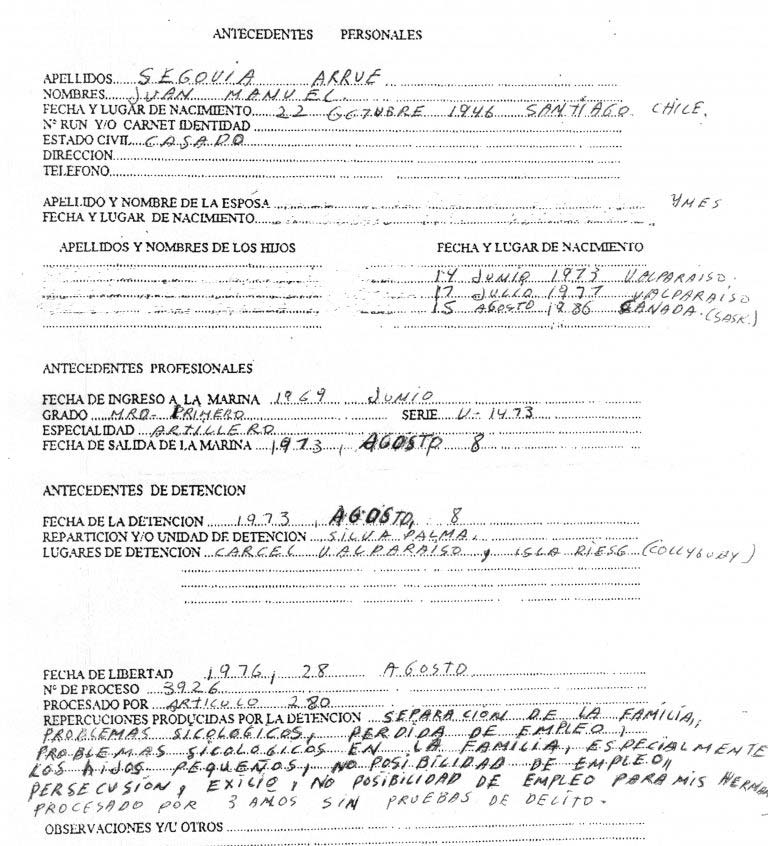 ANTECEDENTES PERSONALES
APELLIDOS SEGOVIA ARRUE
NOMBRES JUAN MANUEL.
FECHA Y LUGAR DE NACIMIENTO 22 OCTUBRE 1946 SANTIAGO CHILE.
Nº RUN Y/O CARNET IDENTIDAD
ESTADO CIVIL CASADO
DIRECCION
TELEFONO
APELLIDO Y NOMBRE DE LA ESPOSA YMES
FECHA Y LUGAR DE NACIMIENTO
APELLIDOS Y NOMBRES DE LOS HIJOS FECHA Y LUGAR DE NACIMIENTO
14 JUNIO 1973 VALPARAISO.
17 JULIO 1977 VALPARAISO
15 AGOSTO 1986 CANADA. (SASK.)
ANTECEDENTES PROFESIONALES
FECHA DE INGRESO A LA MARINA 1969 JUNIO
GRADO MRO- PRIMERO SERIE U-1473
ESPECIALIDAD ARTILLERO
FECHA DE SALIDA DE LA MARINA 1973, AGOSTO 8
ANTECEDENTES DE DETENCION
FECHA DE LA DETENCION 1973, AGOSTO, 8
REPARTICION Y/O UNIDAD DE DETENCION SILVA PALMA.
LUGARES DE DETENCION CARCEL VALPARAISO, ISLA RIESG (COLLYGUAY)
FECHA DE LIBERTAD 1976, 28 AGOSTO
Nº DE PROCESO 3926
PROCESADO POR ARTICULO 280
REPERCUCIONES PRODUCIDAS POR LA DETENCION SEPARACION DE LA FAMILIA,
PROBLEMAS SICOLOGICOS, PERDIDA DE EMPLEO,
PROBLEMAS SICOLOGICOS EN LA FAMILIA, ESPECIALMENTE
LOS HIJOS PEQUEÑOS, NO POSIBILIDAD DE EMPLEO,
PERSECUSIÓN, EXILIO, NO POSIBILIDAD DE EMPLEO PARA MIS HERMA
PROCESADO POR 3 AMOS SIN PRUEBAS DE DELITO.
OBSERVACIONES Y/U OTROS